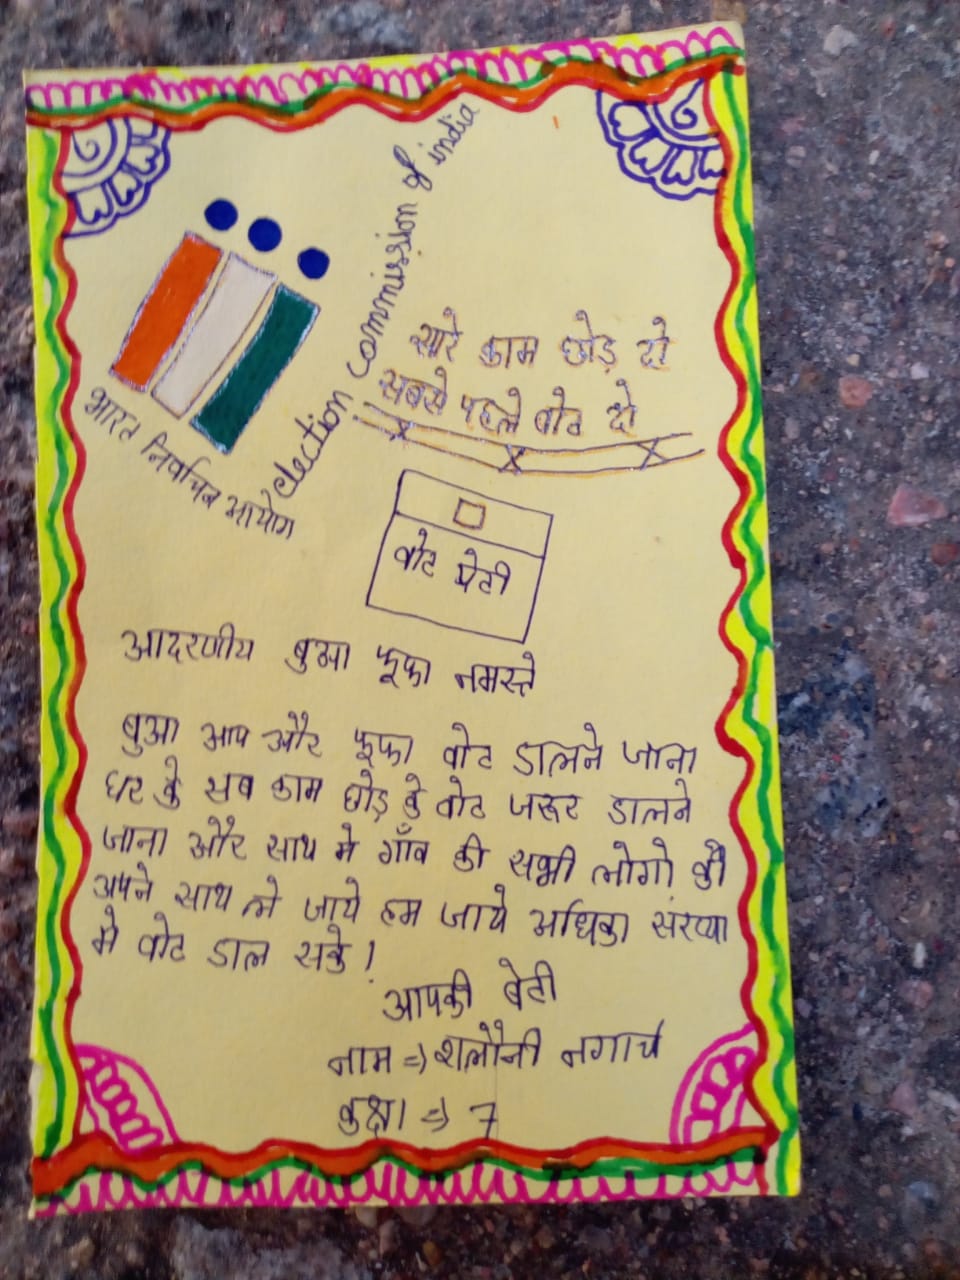 election commission of india
भारत निर्वाचन आयोग
सारे काम छोड़ दो
सबसे पहले वोट दो
वोट पेटी
आदरणीय बुआ फूफा नमस्ते
बुआ आप और फूफा वोट डालने जाना
घर के सब काम छोड़ के वोट जरूर डालने
जाना और साथ मे गाँव की सभी लोगो को
अपने साथ ले जाये हम जाये अधिका संख्या
मे वोट डाल सके!
आपकी बेटी
नाम => शलौनी नगार्च
कक्षा => 7